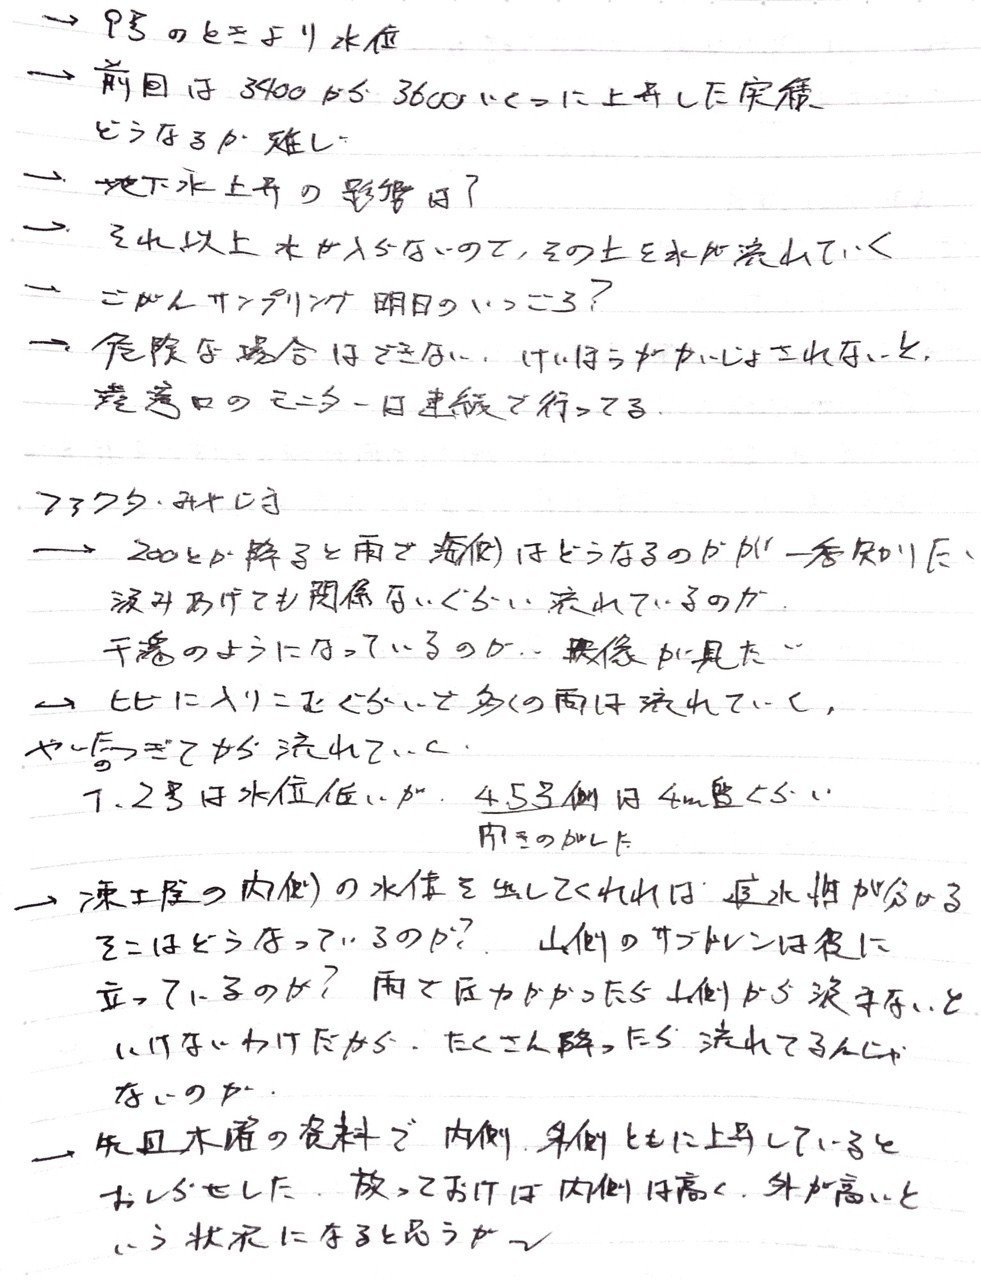 → 9号のときより水位
→ 前回は3400から3600いくつに上昇した実績
どうなるか難しい
→ 地下水上昇の影響は?
→ それ以上水が入らないので、その上を水が流れていく
→ ごがんサンプリング明日のいつごろ?
→ 危険な場合はできない. けいほうがかいじょされないと.
港湾口のモニターは連続で行ってる.
ファクタ・みやじま
→ 200とか降ると雨で海側はどうなるのかが一番知りたい
汲みあげても関係ないぐらい流れているのか.
干潟のようになっているのか.. 映像が見たい
→ ヒビに入りこむぐらいで多くの雨は流れていく,
つぎてから流れていく.
1.2号は水位低いが. 4.5号側は4m盤ぐらい
→ 凍土壁の内側の水位を出してくれれば 遮水性が分かる
そこはどうなっているのか? 山側のサブドレンは役に
立っているのか? 雨で圧力がかかったら山側から汲まないと
いけないわけだから. たくさん降ったら流れてるんじゃ
ないのか.
→ 先週木曜の資料で 内側.外側ともに上昇していると
おしらせした. 放っておけば内側は高く. 外が高いと
いう状況になると思うが〜